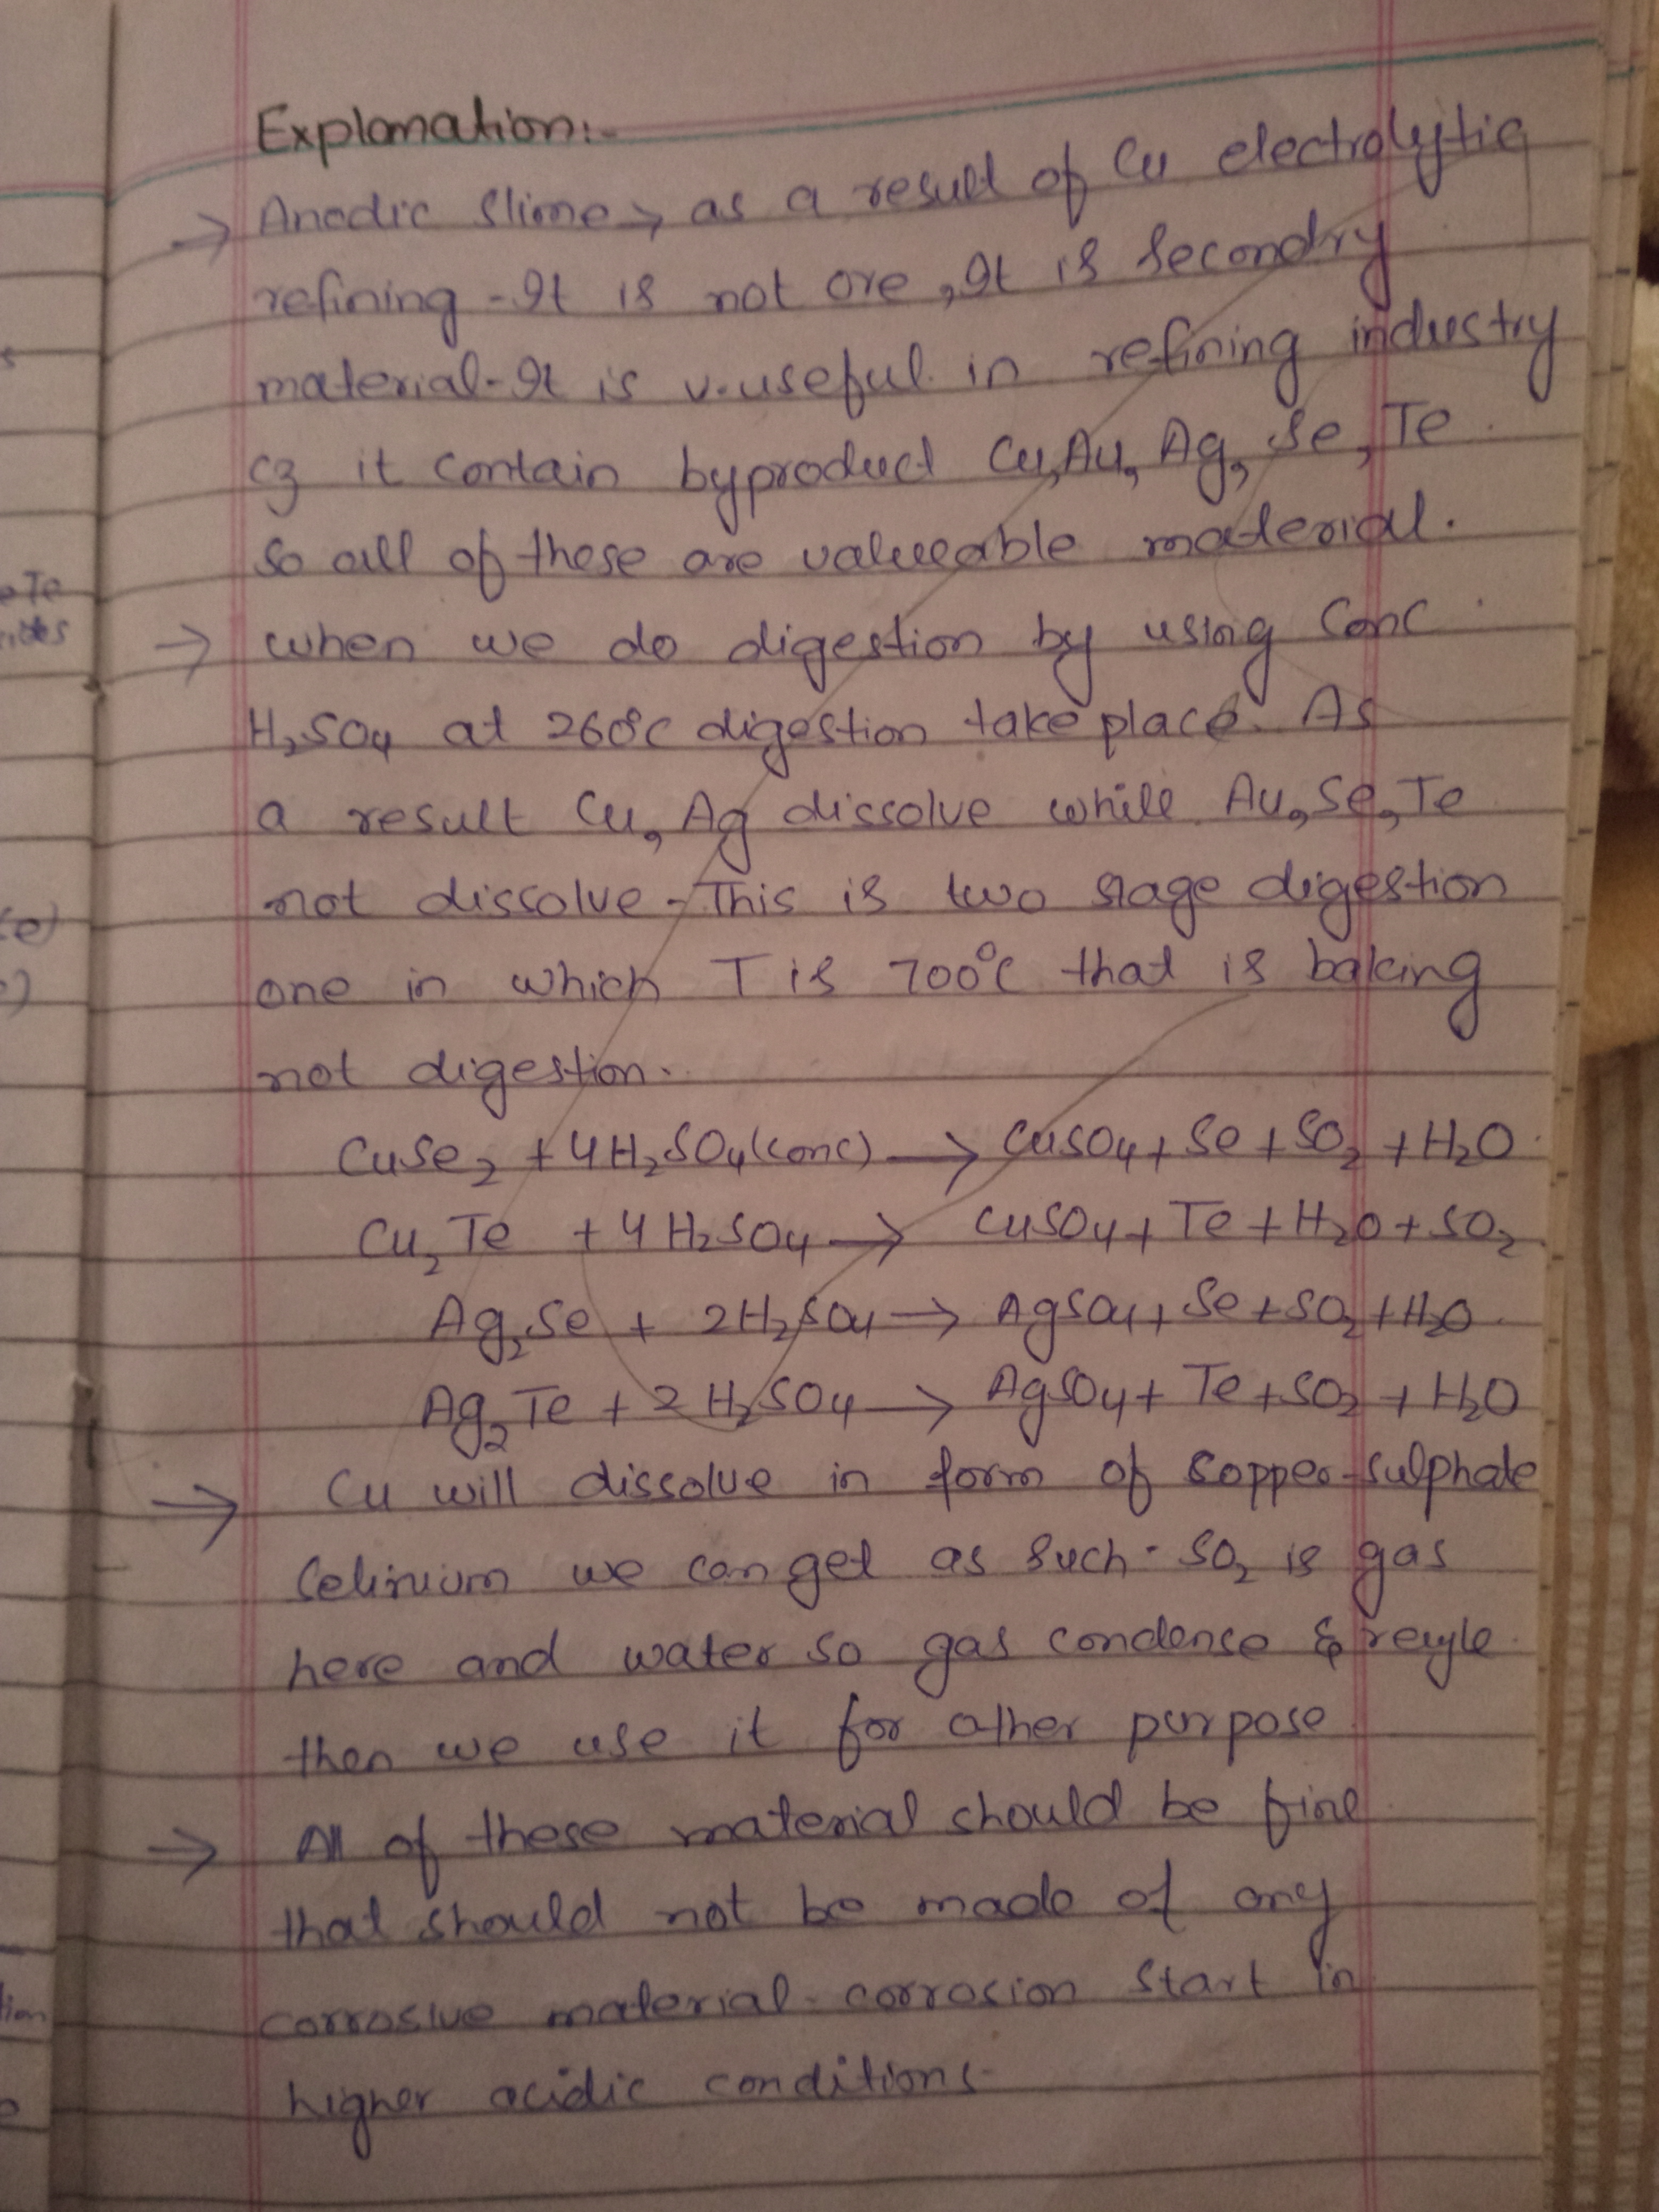 Explanation:-
→ Anodic slime → as a result of Cu electrolytic
refining - It is not ore, It is secondry
material - It is v. useful in refining industry
cz it contain byproduct Cu, Au, Ag, Se, Te.
So all of these are valueable material.
→ when we do digestion by using Conc
H₂SO₄ at 260°C digestion take place. As
a result Cu, Ag dissolve while Au, Se, Te
not dissolve - This is two stage digestion
one in which T is 700°C that is baking
not digestion.
CuSe₂ + 4H₂SO₄(conc) → CuSO₄ + Se + SO₂ + H₂O
Cu₂Te + 4H₂SO₄ → CuSO₄ + Te + H₂O + SO₂
Ag₂Se + 2H₂SO₄ → AgSO₄ + Se + SO₂ + H₂O
Ag₂Te + 2H₂SO₄ → AgSO₄ + Te + SO₂ + H₂O
→ Cu will dissolve in form of copper sulphate
Selinium we can get as such. SO₂ is gas
here and water so gas condense & reycle
then we use it for other purpose
→ All of these material should be fine
that should not be made of any
corrosive material - corrosion start in
higher acidic conditions-
eTe
ides
tion